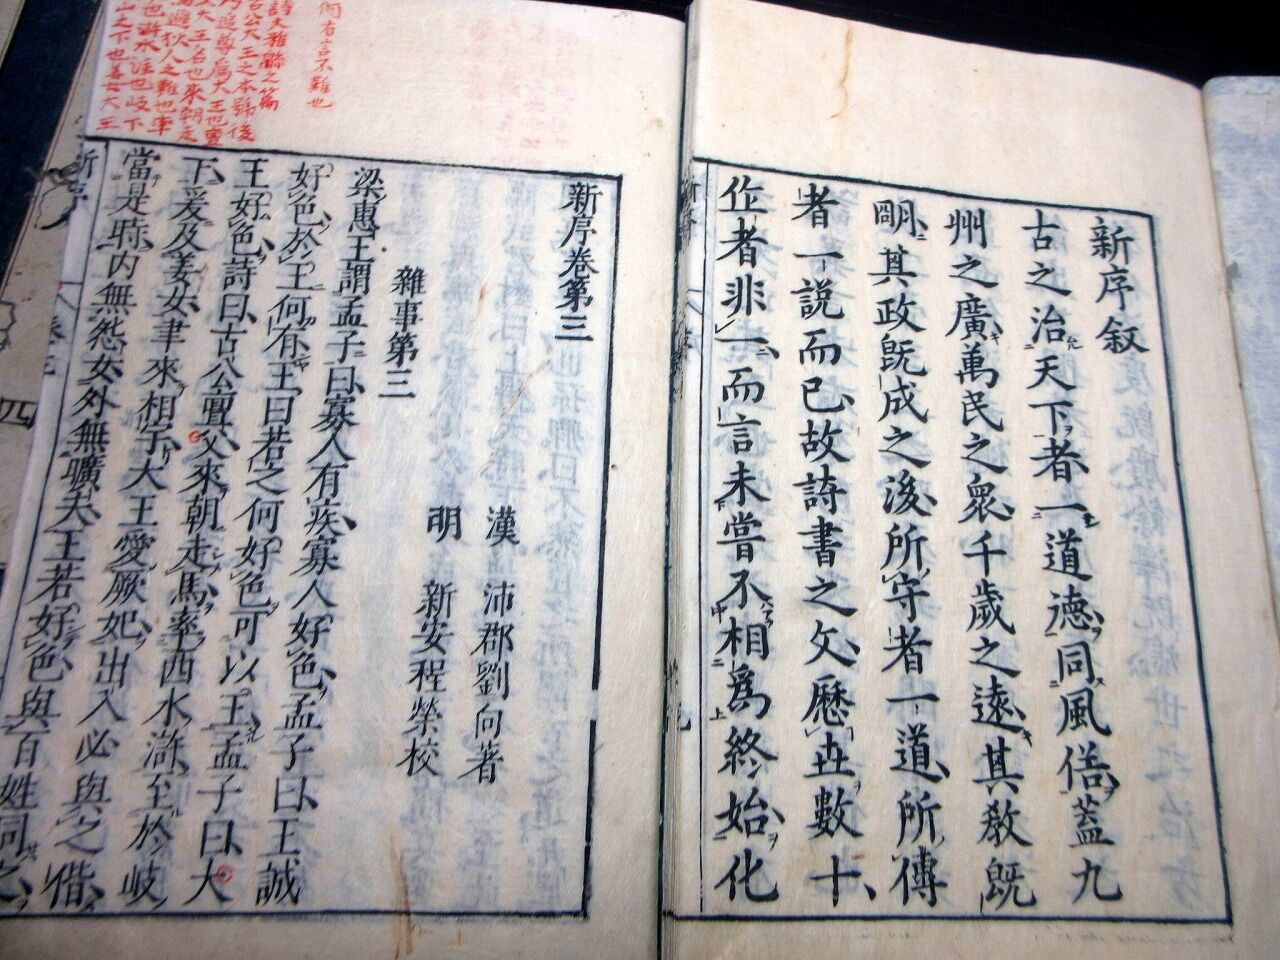 新序叙
古之治天下者一道德同風俗蓋九
州之廣萬民之衆千歲之遠其教既
明其政既成之後所守者一道所傳
者一說而已故詩書之文歷世數十
作者非一而言未嘗不相爲終始化
新序卷第三
漢 沛郡劉向著
明 新安程榮校
雜事第三
梁惠王謂孟子曰寡人有疾寡人好色孟子曰王誠
好色於王何有王曰若之何好色可以王孟子曰大
王好色詩曰古公亶父來朝走馬率西水滸至於岐
下爰及姜女聿來相宇大王愛厥妃出入必與之偕
當是時內無怨女外無曠夫王若好色與百姓同之
何有言不難也
詩大雅緜之篇
古公大王之本號後
乃追尊爲大王也亶
父大王名也來朝走
馬避狄人之難也率
也滸水涯也岐下
山之下也姜女大王
新序
卷三
四